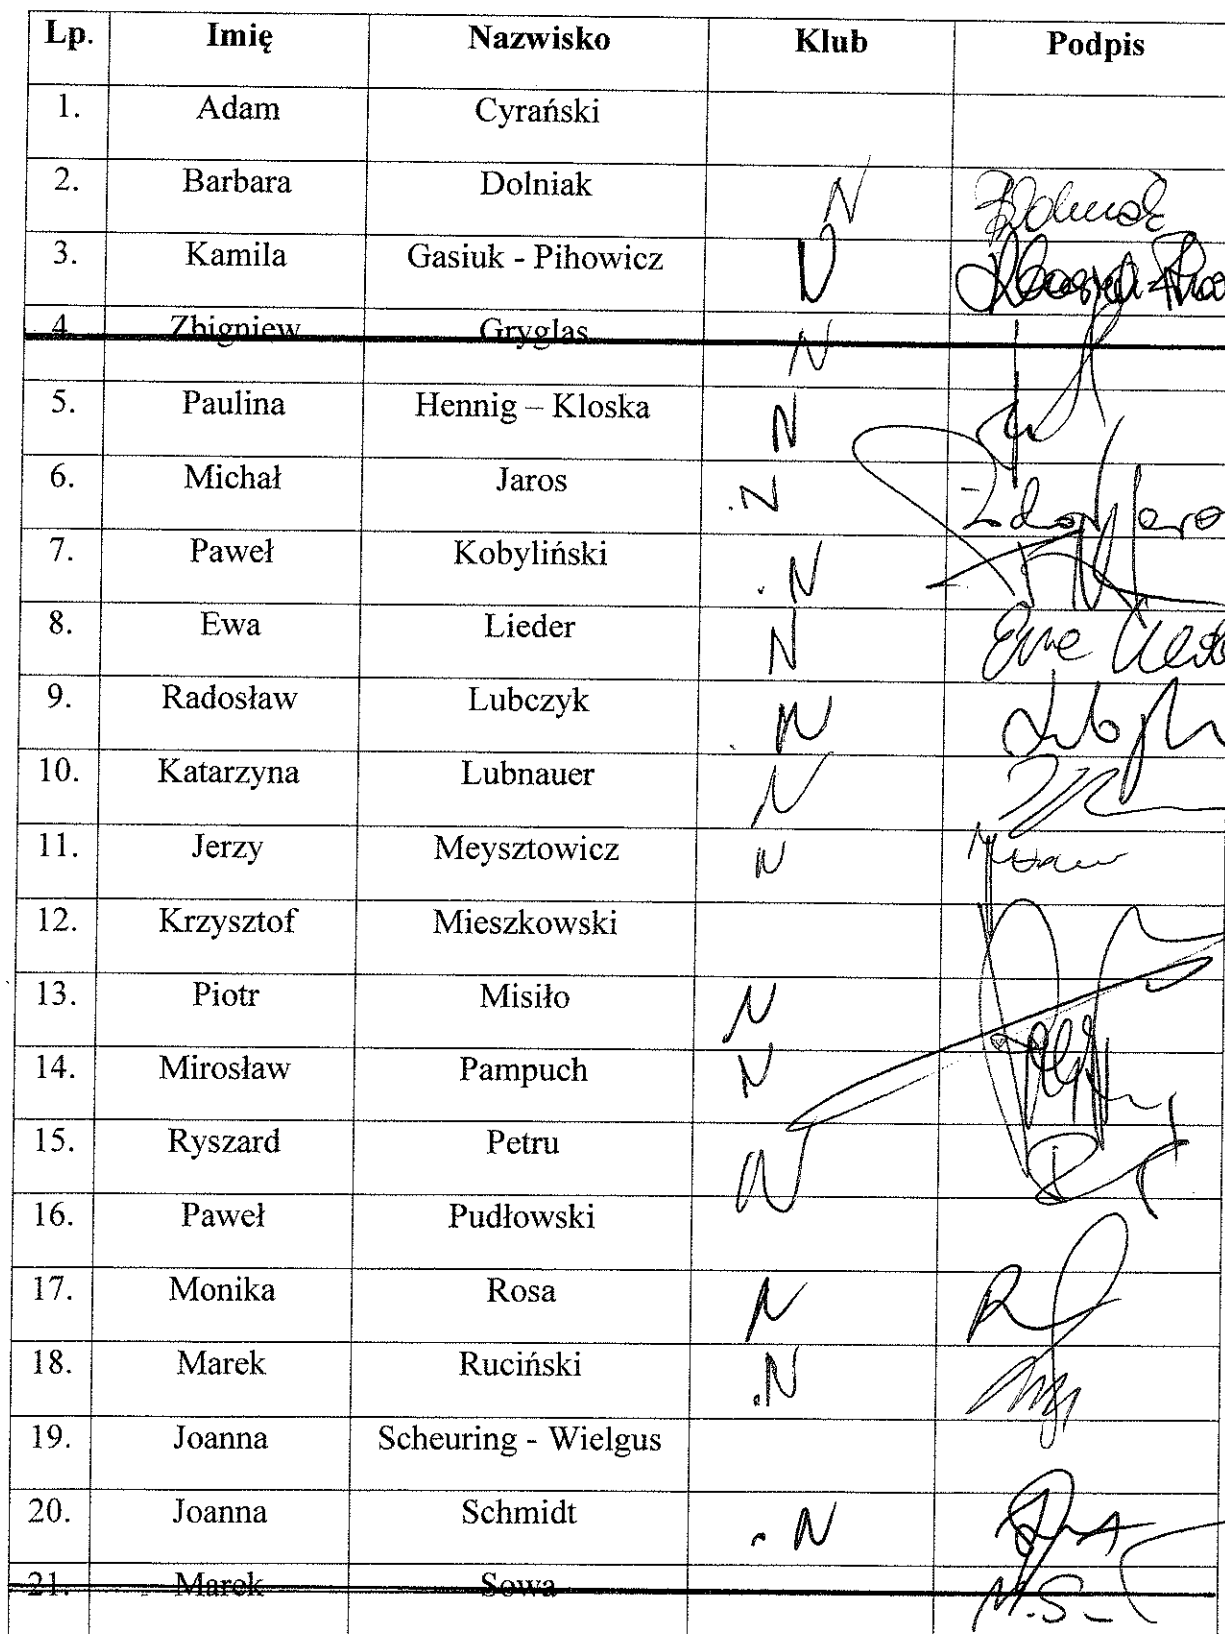 Lp. Imię Nazwisko Klub Podpis
1. Adam Cyrański
2. Barbara Dolniak N
3. Kamila Gasiuk - Pihowicz N
4. Zbigniew Gryglas N
5. Paulina Hennig – Kloska N
6. Michał Jaros .N
7. Paweł Kobyliński .N
8. Ewa Lieder N Ewa Lieder
9. Radosław Lubczyk N
10. Katarzyna Lubnauer N
11. Jerzy Meysztowicz N
12. Krzysztof Mieszkowski
13. Piotr Misiło N
14. Mirosław Pampuch N
15. Ryszard Petru N
16. Paweł Pudłowski
17. Monika Rosa N
18. Marek Ruciński .N
19. Joanna Scheuring - Wielgus
20. Joanna Schmidt . N
21. Marek Sowa M.S.